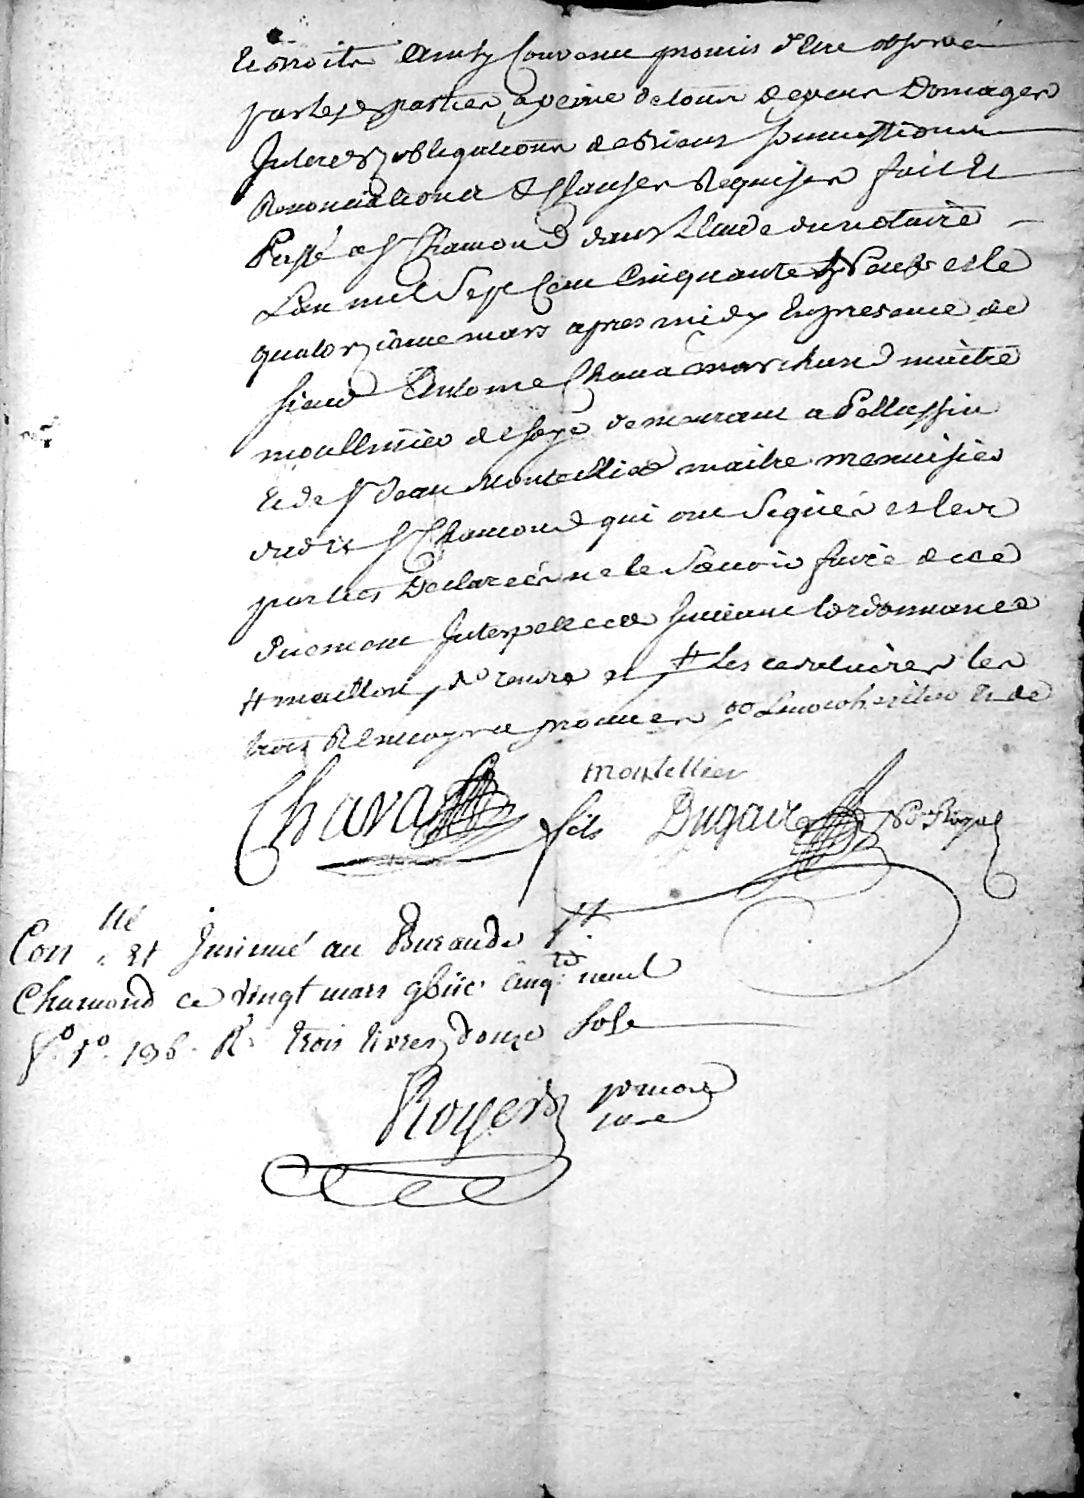 et droits ainsy Convenu promis d'etre observé
par lesd parties a peine de tous depens Domages
Interets obligations de biens soumissions
Renonciations & Clauses Requises fait et
Passé a St Chamond dans L'etude du notaire
L'an mil Sept Cent Cinquante neuf et le
quatorzieme mars apres midy En presence de
sieur Antoine Chava marchand maitre
moullinier de soye demeurant a Pellussin
et de sr Jean Montellier maitre menuisier
dudit St Chamond qui ont Signés et les
parties Declarées ne le Sçavoir faire de ce
duement Interpellées suivant l'ordonnance
# maillon, # les
trois Renvoys
Chava montellier
fils Dugaire No Royal
Con lle Et Insinué au Bureau de St
Chamond ce vingt mars gbiic cinq te neuf
fo 196 R trois livres douze sols
Royer